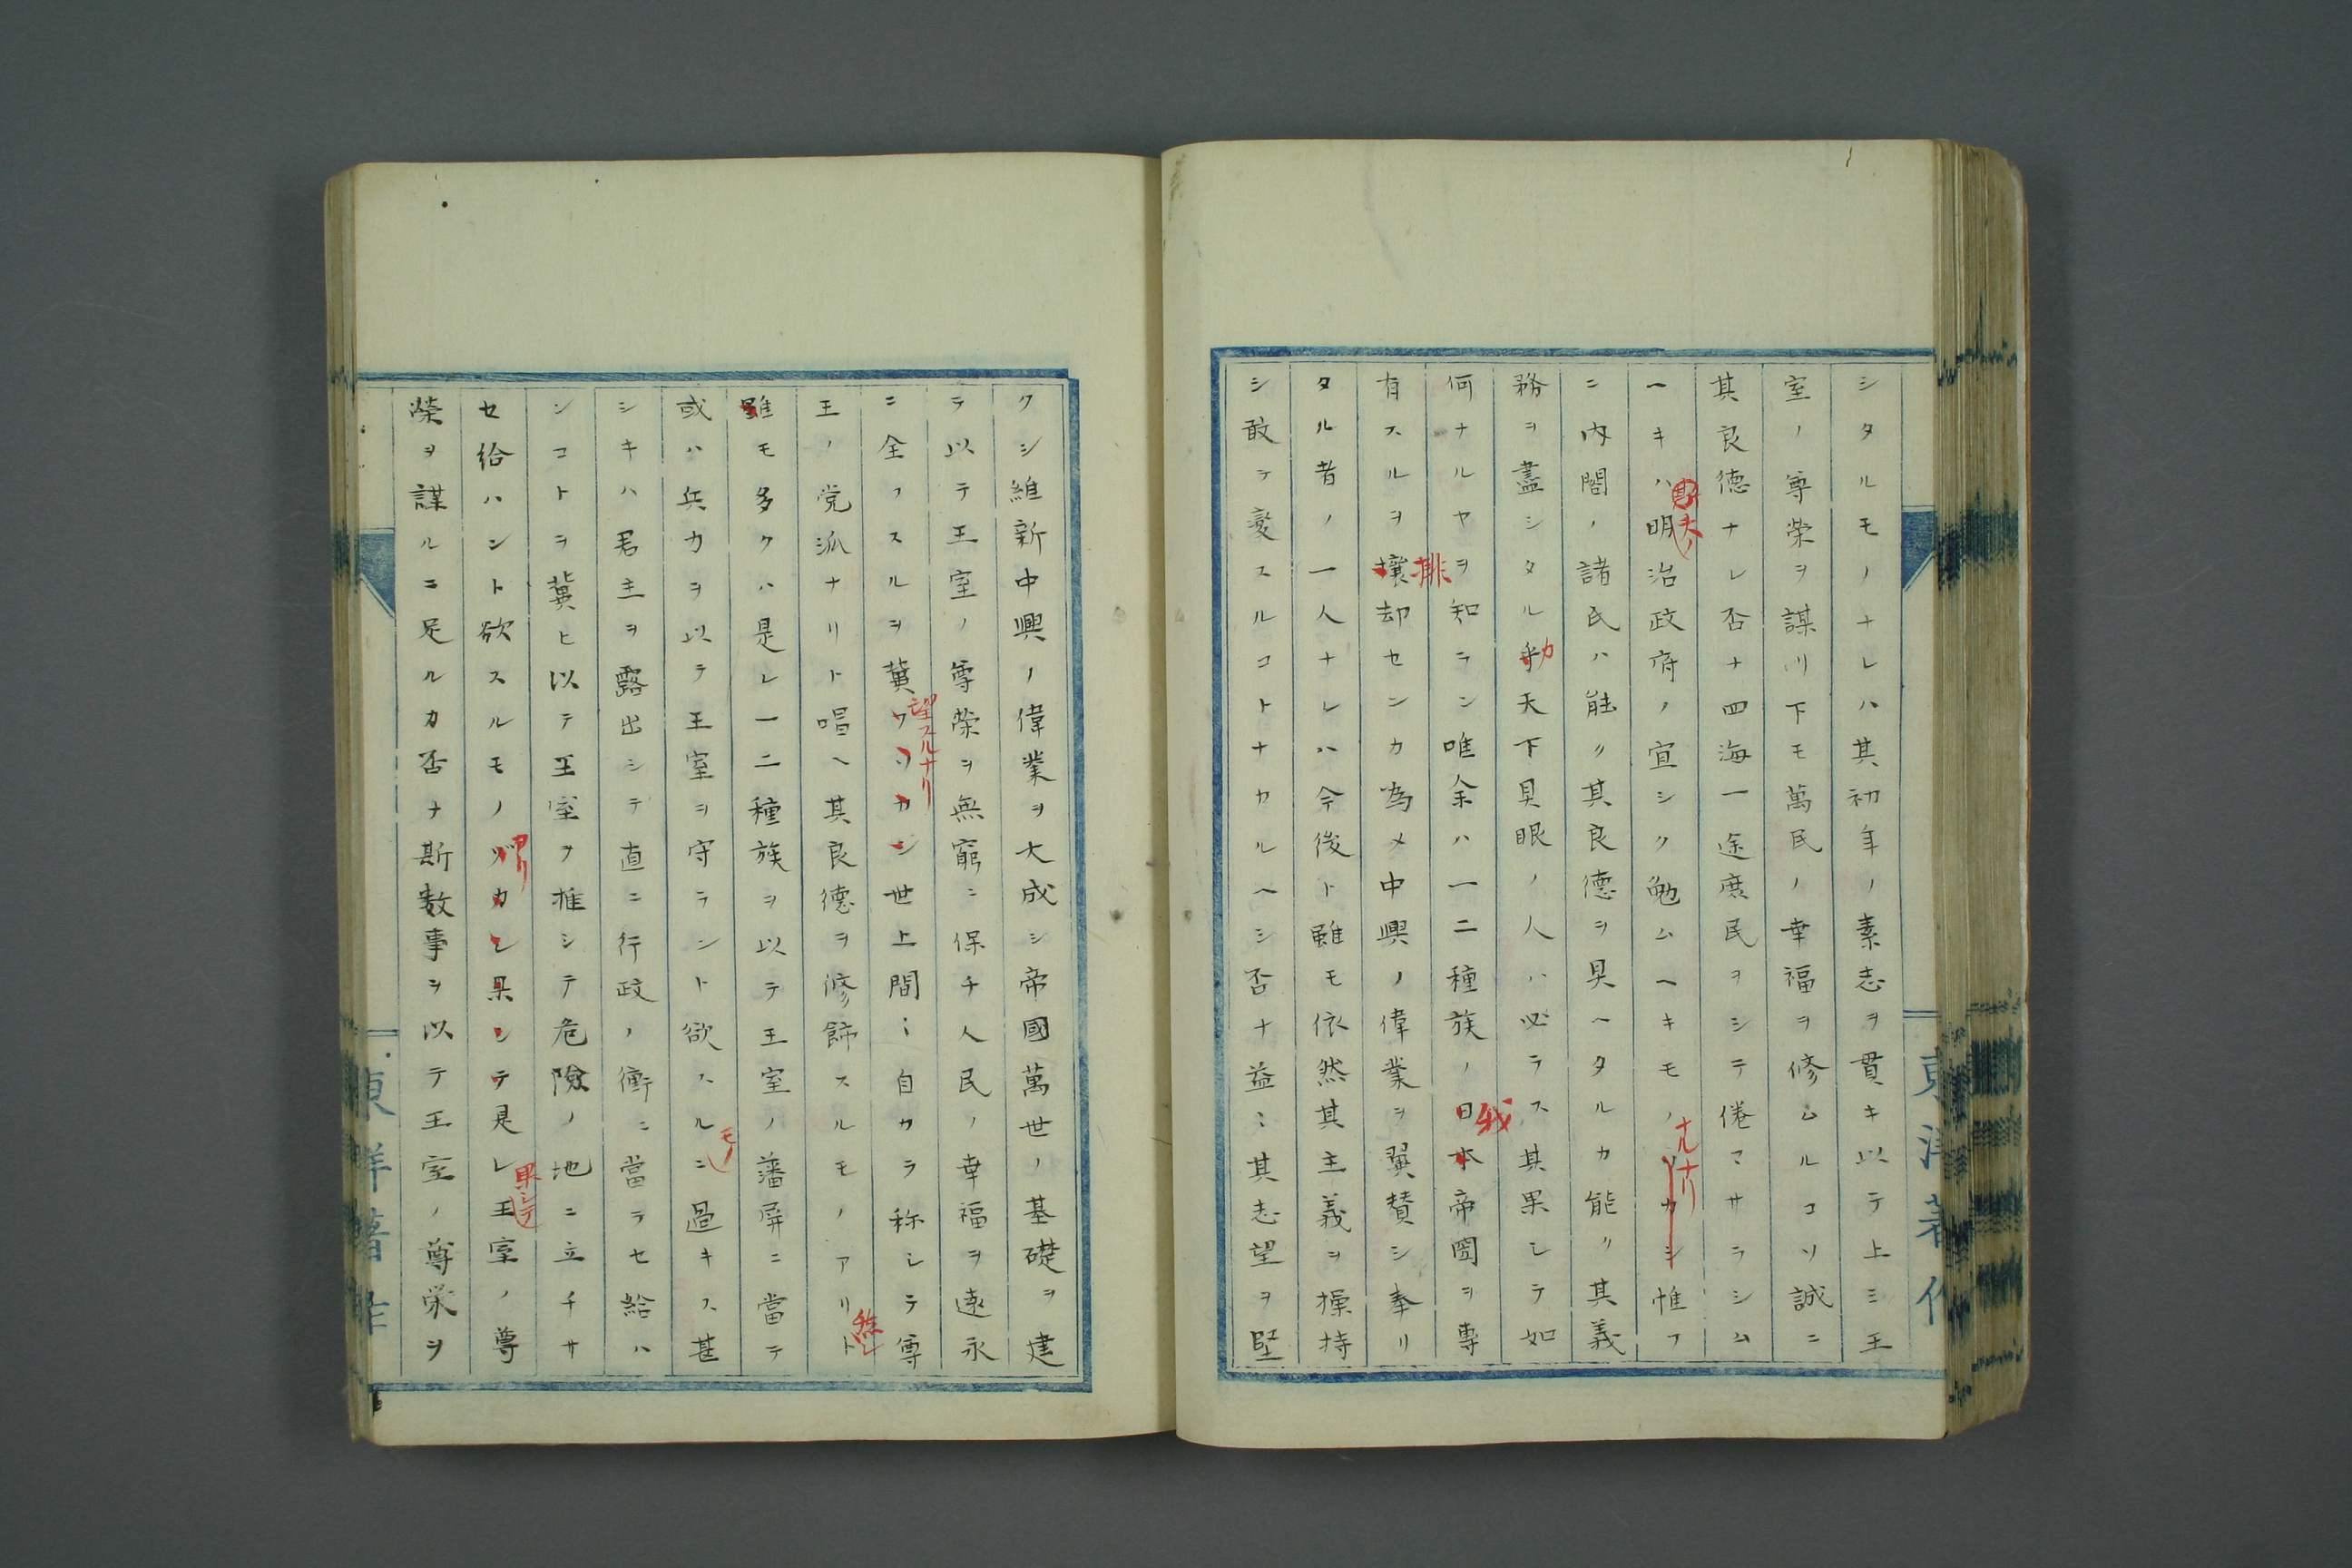 シタルモノナレハ其初年ノ素志ヲ貫キ以テ上ミ王
室ノ尊榮ヲ謀リ下モ萬民ノ幸福ヲ修ムルコソ誠ニ
其良徳ナレ否ナ四海一途庶民ヲシテ倦マサラシム
ヘキハ明治政府ノ宜シク勉ムヘキモノ カシ惟フ
夫ノ
ナルナリ
ニ内閣ノ諸氏ハ能ク其良徳ヲ具ヘタルカ能ク其義
務ヲ盡シタル乎天下具眼ノ人ハ必ラス其果シテ如
カ
何ナルヤヲ知ラン唯余ハ一二種族ノ日本帝國ヲ專
我
有スルヲ攘却センカ為メ中興ノ偉業ヲ翼賛シ奉リ
排
タル者ノ一人ナレハ今後ト雖モ依然其主義ヲ操持
シ敢テ変スルコトナカルヘシ否ナ益ミ其志望ヲ堅
東洋著作
クシ維新中興ノ偉業ヲ大成シ帝國萬世ノ基礎ヲ建
テ以テ王室ノ尊榮ヲ無窮ニ保チ人民ノ幸福ヲ遠永
ニ全フスルヲ冀フ ソカシ世上間ミ自カラ称シテ尊
望スルナリ
王ノ党派ナリト唱ヘ其良德ヲ修飾スルモノアリト
然レ
雖モ多クハ是レ一二種族ヲ以テ王室ノ藩屏ニ當テ
或ハ兵力ヲ以テ王室ヲ守ラント欲スルニ過キス甚
モノ
シキハ君主ヲ露出シテ直ニ行政ノ衝ニ當ラセ給ハ
ンコトヲ冀ヒ以テ王室ヲ推シテ危險ノ地ニ立チサ
セ給ハント欲スルモノゾカシ果シテ是レ王室ノ尊
アリ
果シテ
榮ヲ謀ルニ足ルカ否ナ斯数事ヲ以テ王室ノ尊栄ヲ
東洋著作